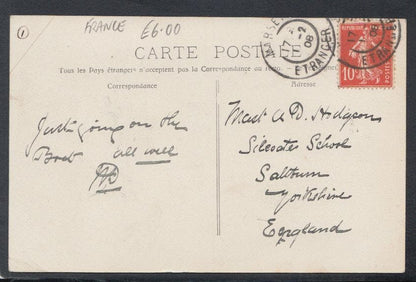 1
FRANCE £6.00
CARTE POSTALE
Tous les Pays étrangers n'acceptent pas la Correspondance au recto
Correspondance
Adresse
17-2
08
ETRANGER
10
ETRANGER
Just going on the
Boat all well
Hodgson
Silcoates School
Saltburn
Yorkshire
England